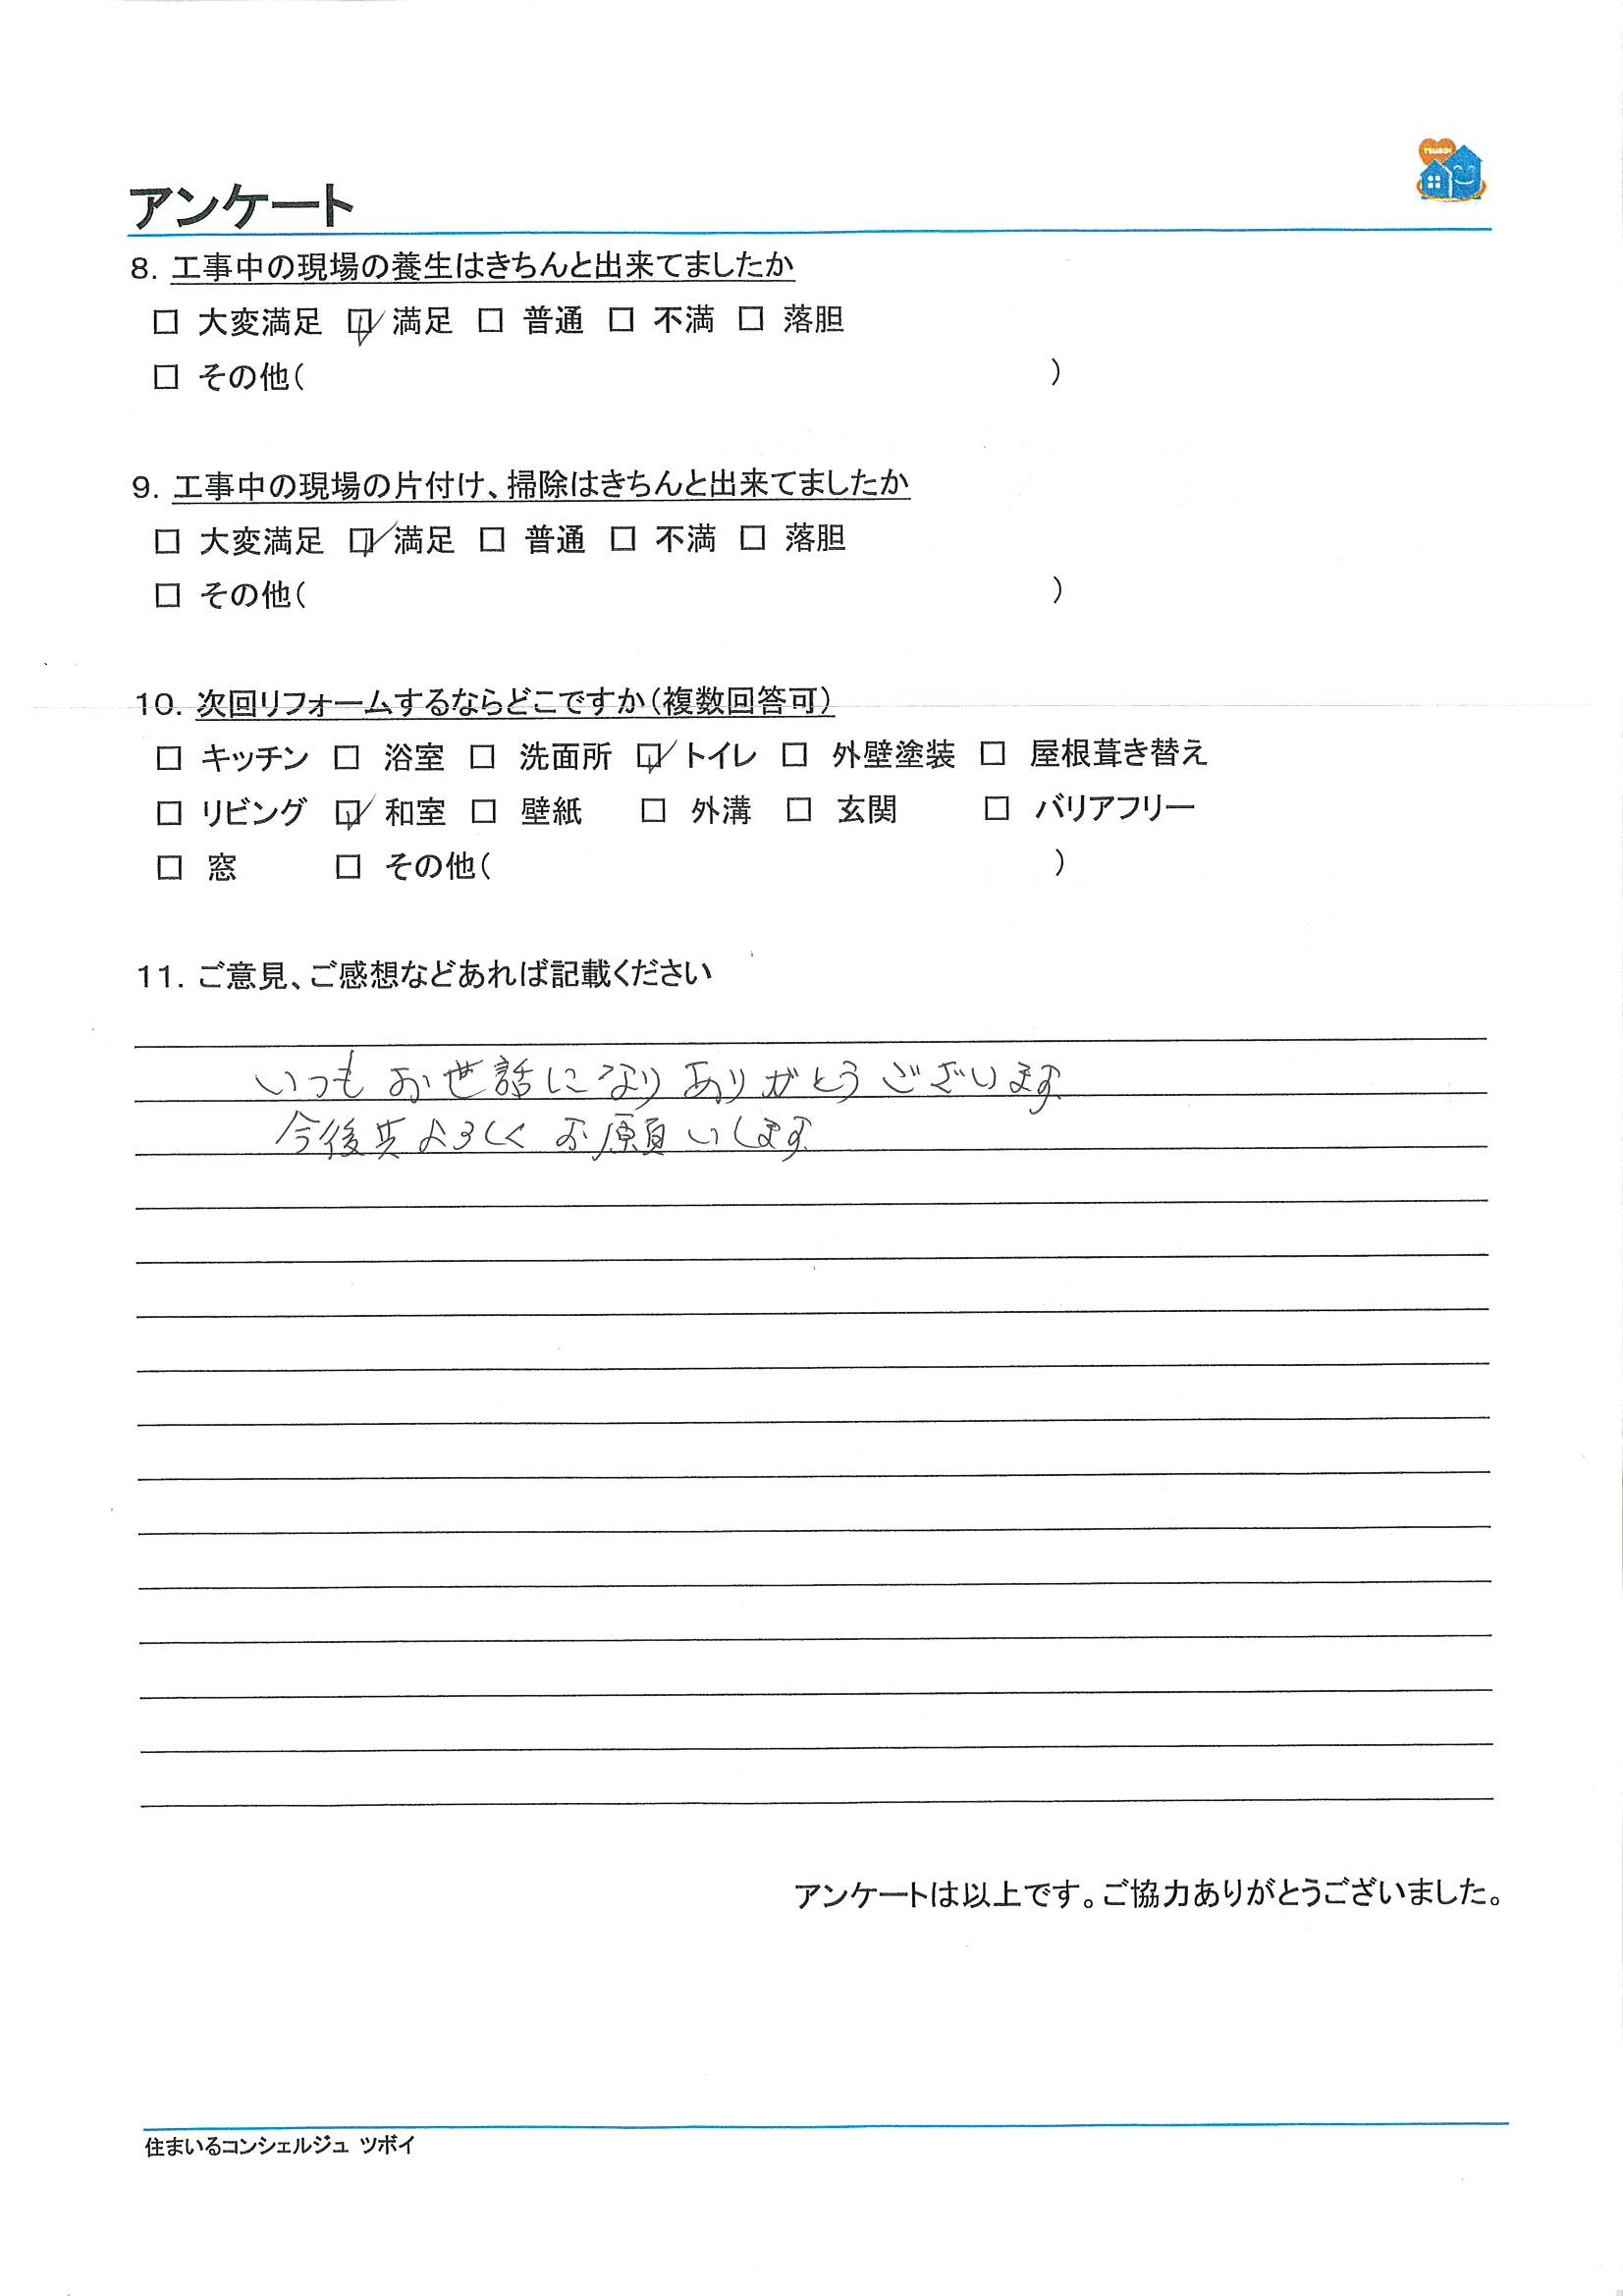 TSUBOI
アンケート
8. 工事中の現場の養生はきちんと出来てましたか
□ 大変満足 ☑ 満足 □ 普通 □ 不満 □ 落胆
□ その他( )
9. 工事中の現場の片付け、掃除はきちんと出来てましたか
□ 大変満足 ☑ 満足 □ 普通 □ 不満 □ 落胆
□ その他( )
10. 次回リフォームするならどこですか(複数回答可)
□ キッチン □ 浴室 □ 洗面所 ☑ トイレ □ 外壁塗装 □ 屋根葺き替え
□ リビング ☑ 和室 □ 壁紙 □ 外溝 □ 玄関 □ バリアフリー
□ 窓 □ その他( )
11. ご意見、ご感想などあれば記載ください
いつもお世話になりありがとうございます
今後共よろしくお願いします
アンケートは以上です。ご協力ありがとうございました。
住まいるコンシェルジュ ツボイ